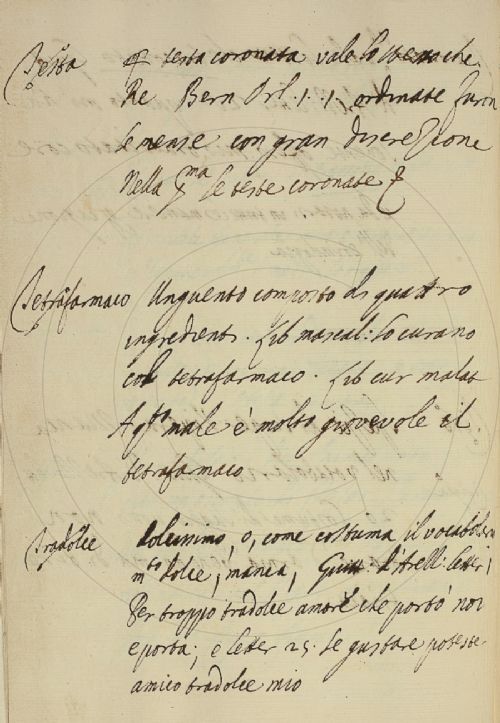 Testa testa coronata vale lo stesso che
Re Bern Orl. 1. 1. ordinate furon
le mense con gran discrezione
Nella p.ma le teste coronate
Tetrafarmaco Unguento composto di quattro
ingredienti. Lib mascal: lo curano
col tetrafarmaco. Lib cur malat
A q.to male è molto giovevole il
tetrafarmaco
Tradolce dolcissimo, o, come costuma il vocabolario
m.to dolce, manca, Guitt: d'Arezz: lett: 1
Per troppo tradolce amore che portò noi
e porta; e letter 25. Se gustare poteste
amico tradolce mio